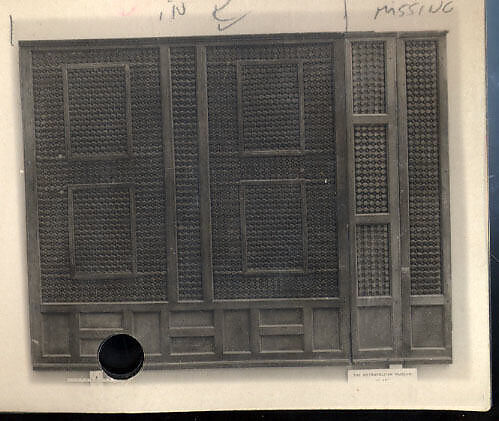 IN
MISSING
THE METROPOLITAN MUSEUM
OF ART